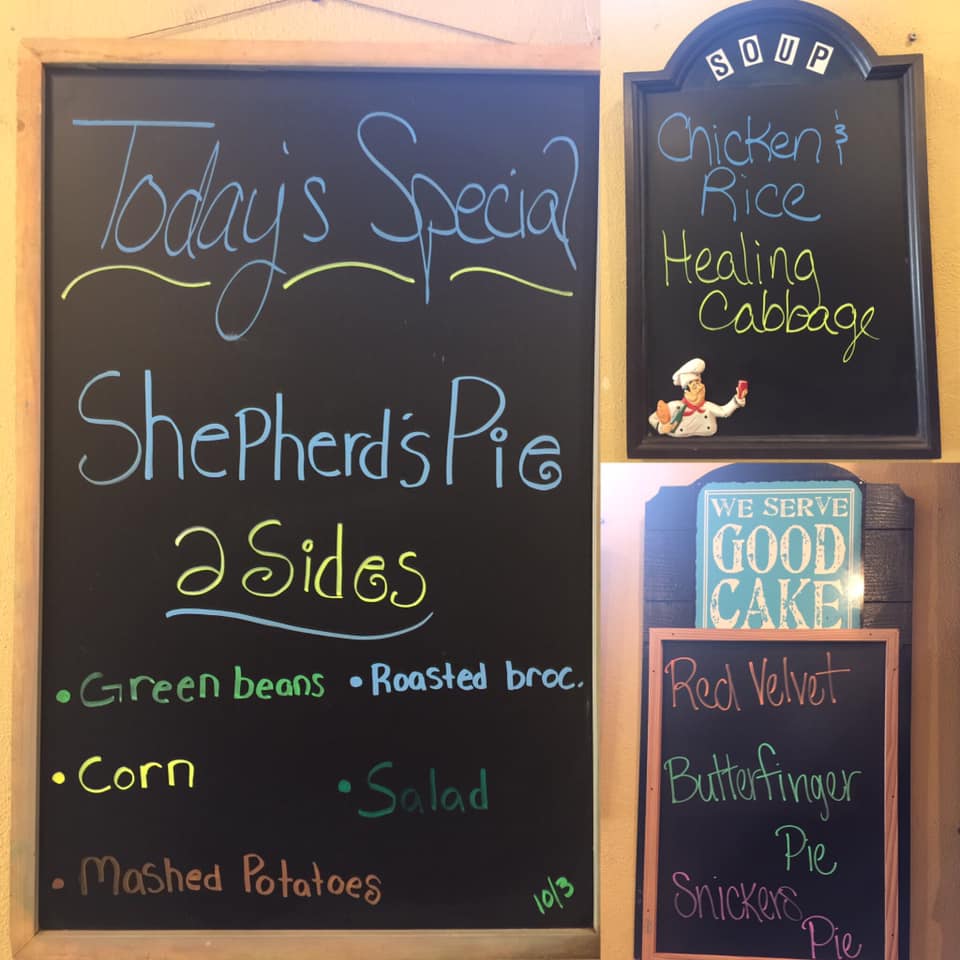 Today's Special
Shepherd's Pie
2 Sides
• Green beans • Roasted broc.
• Corn
• Salad
• Mashed Potatoes
10/3
SOUP
Chicken &
Rice
Healing
Cabbage
WE SERVE
GOOD
CAKE
Red Velvet
Butterfinger
Pie
Snickers
Pie